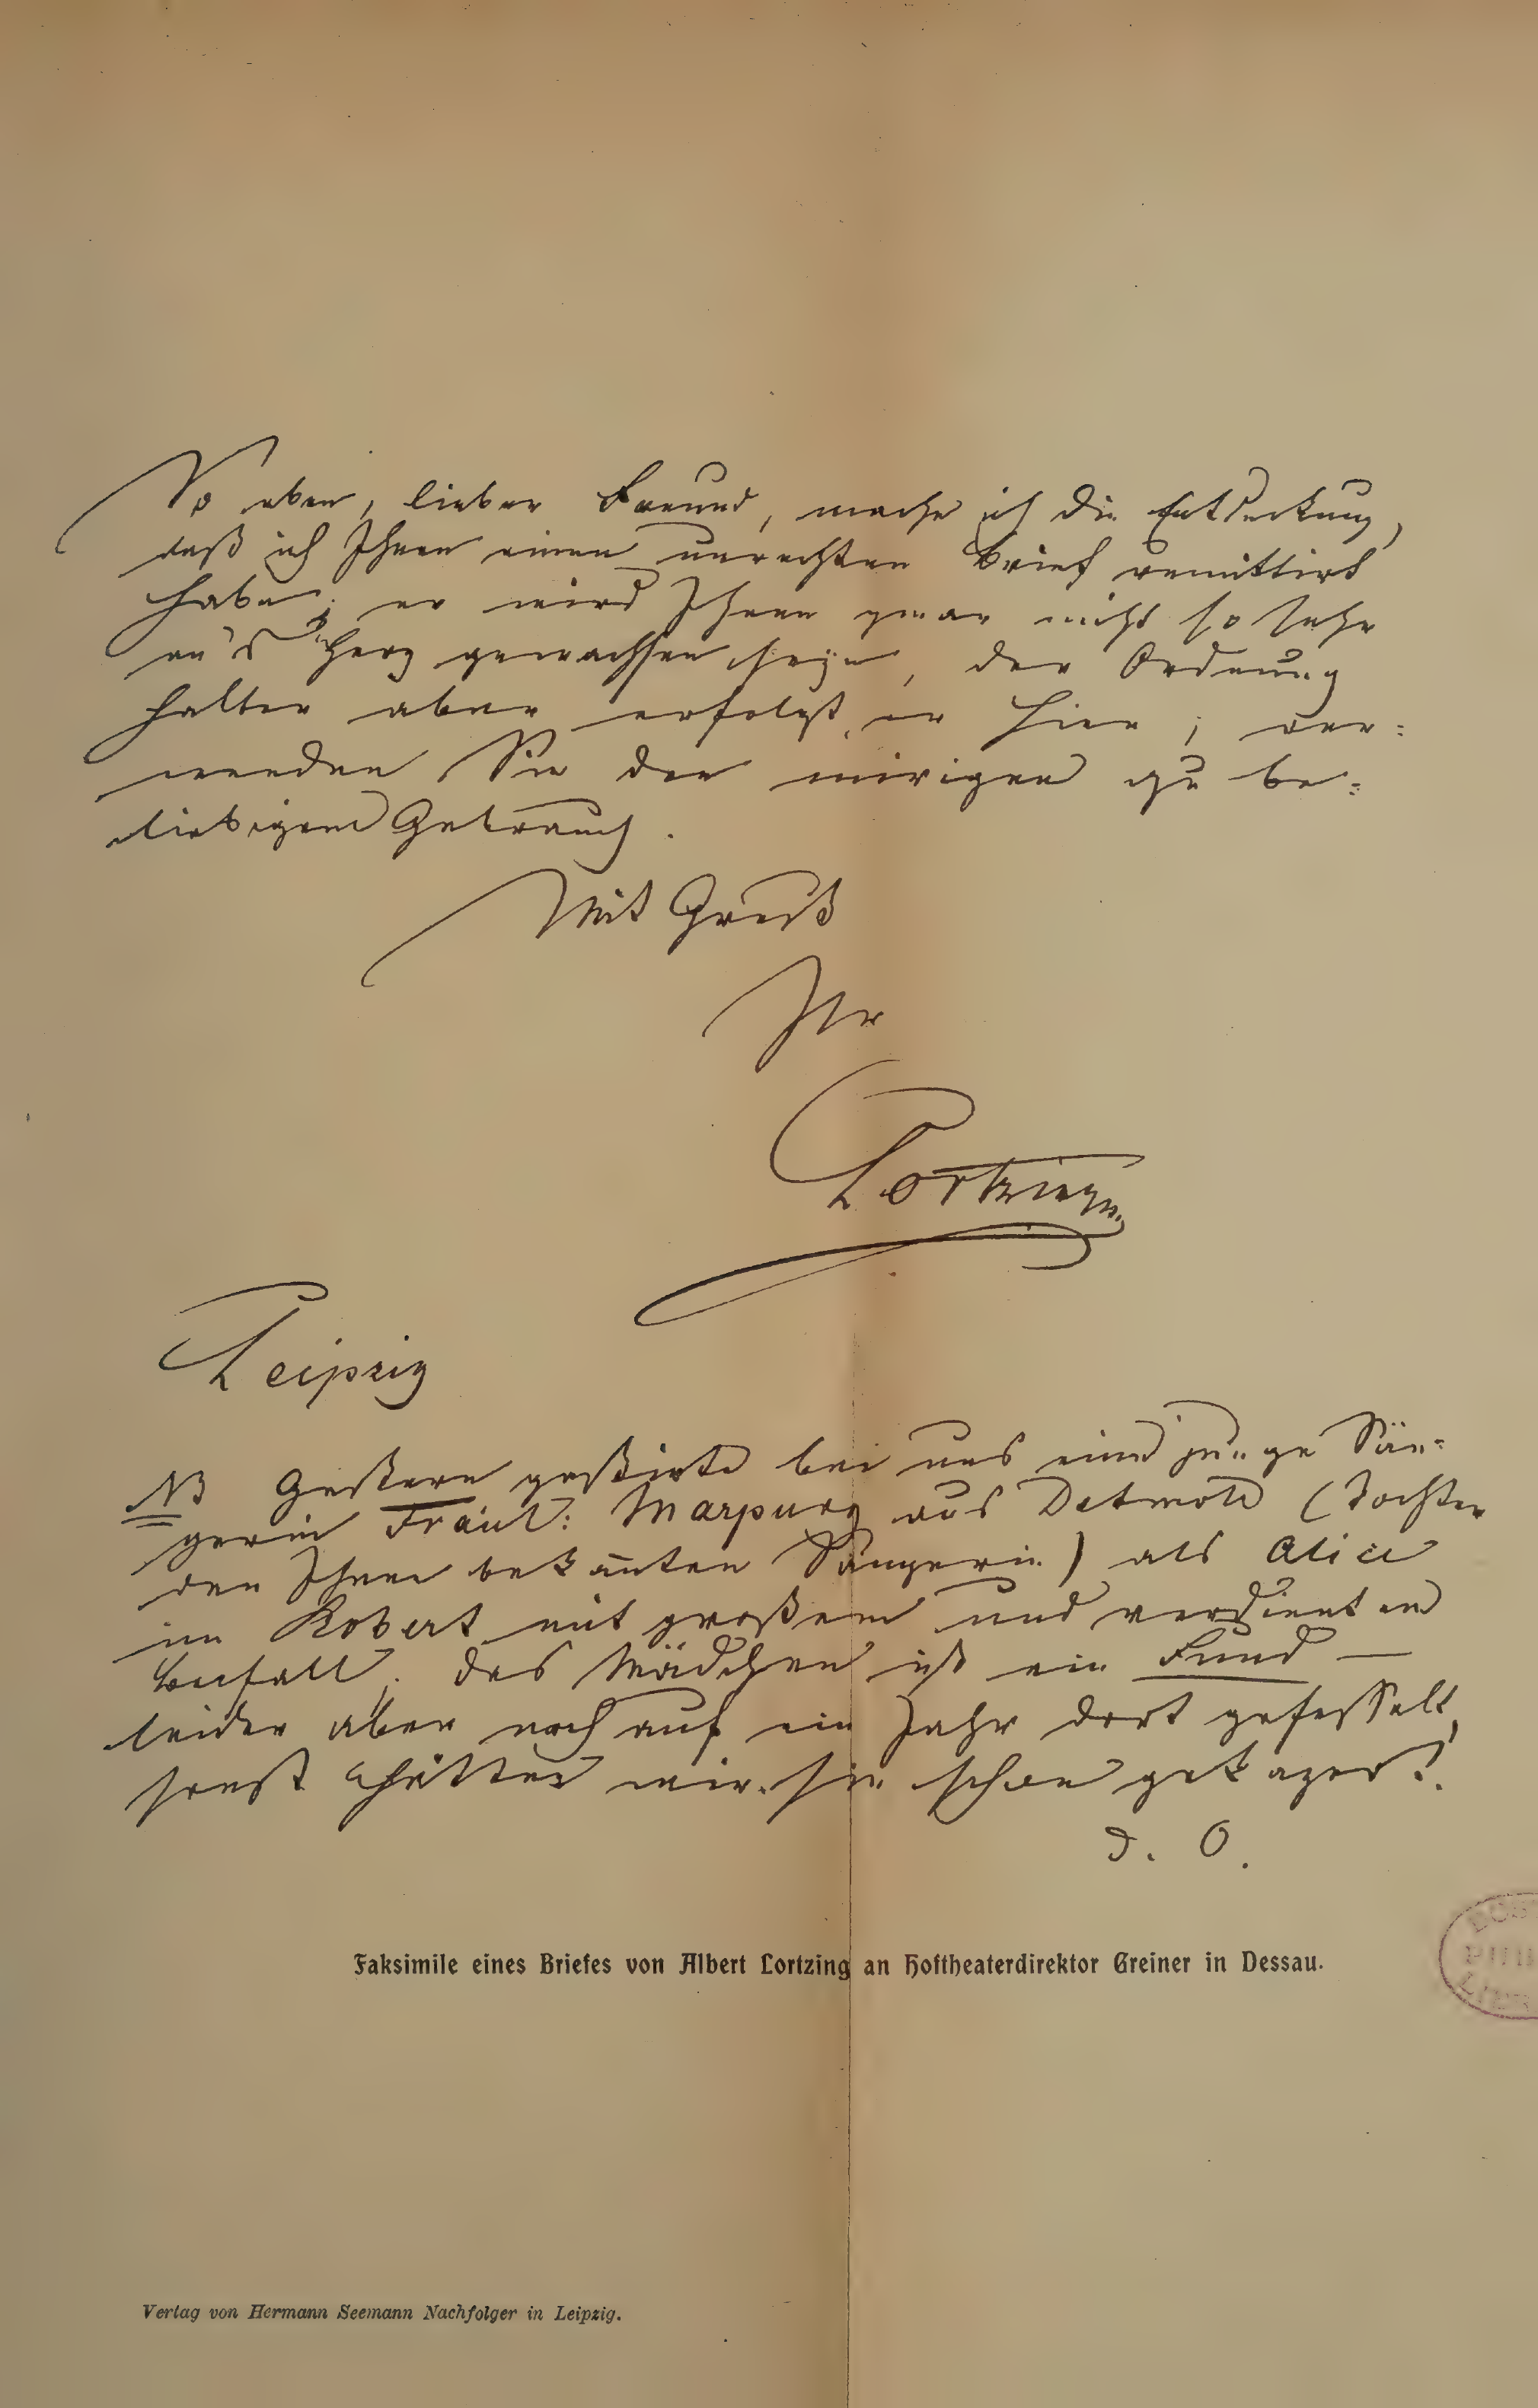 So eben, lieber Freund, mache ich die Entdeckung,
daß ich Ihnen einen unrechten Brief remittirt
habe; er wird Ihnen zwar nicht so sehr
an's Herz gewachsen seyn, der Ordnung
halber aber erfolgt er hier; ver=
wenden Sie den meinigen zu be=
liebigem Gebrauch.
Mit Gruß
Ihr
Lortzing
Leipzig
NB Gestern gastirte bei uns eine junge Sän=
gerin Fräul: Marpurg aus Detmold (Tochter
der Ihnen bekan̄ten Sängerin) als Alice
im Robert mit großem und verdienten
Beifall. Das Mädchen ist ein Fund —
leider aber noch auf ein Jahr dort gefesselt,
sonst hätten wir sie schon gekapert!
D. O.
Faksimile eines Briefes von Albert Lortzing an Hoftheaterdirektor Greiner in Dessau.
Verlag von Hermann Seemann Nachfolger in Leipzig.